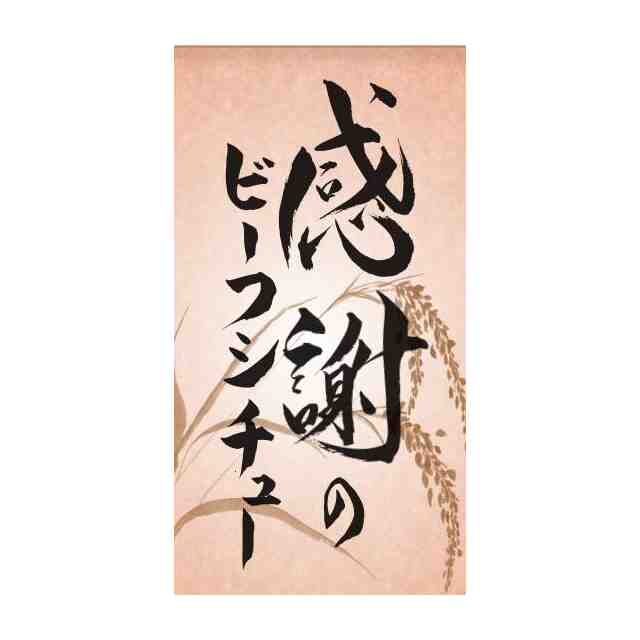 感謝の
ビーフシチュー